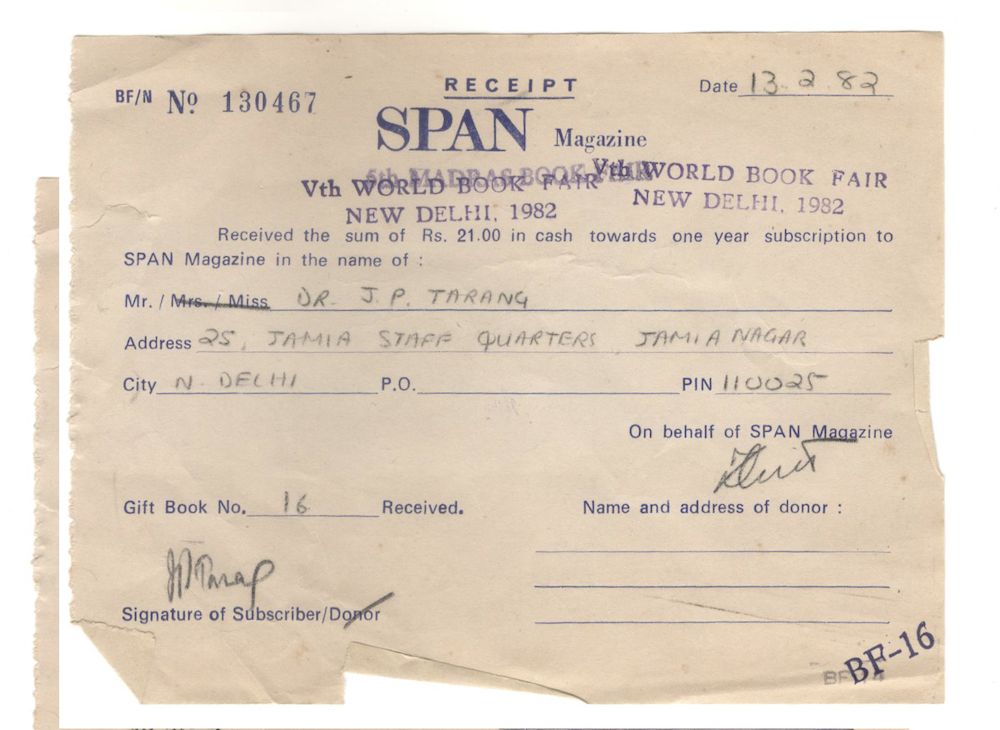 RECEIPT
BF/N No 130467
Date 13.2.82
SPAN Magazine
5th MADRAS BOOK FAIR
Vth WORLD BOOK FAIR
NEW DELHI, 1982
Vth WORLD BOOK FAIR
NEW DELHI, 1982
Received the sum of Rs. 21.00 in cash towards one year subscription to
SPAN Magazine in the name of :
Mr. / Mrs. / Miss DR. J. P. TARANG
Address 25, JAMIA STAFF QUARTERS, JAMIA NAGAR
City N. DELHI P.O. PIN 110025
On behalf of SPAN Magazine
Gift Book No. 16 Received.
Name and address of donor :
Signature of Subscriber/Donor
BF-16